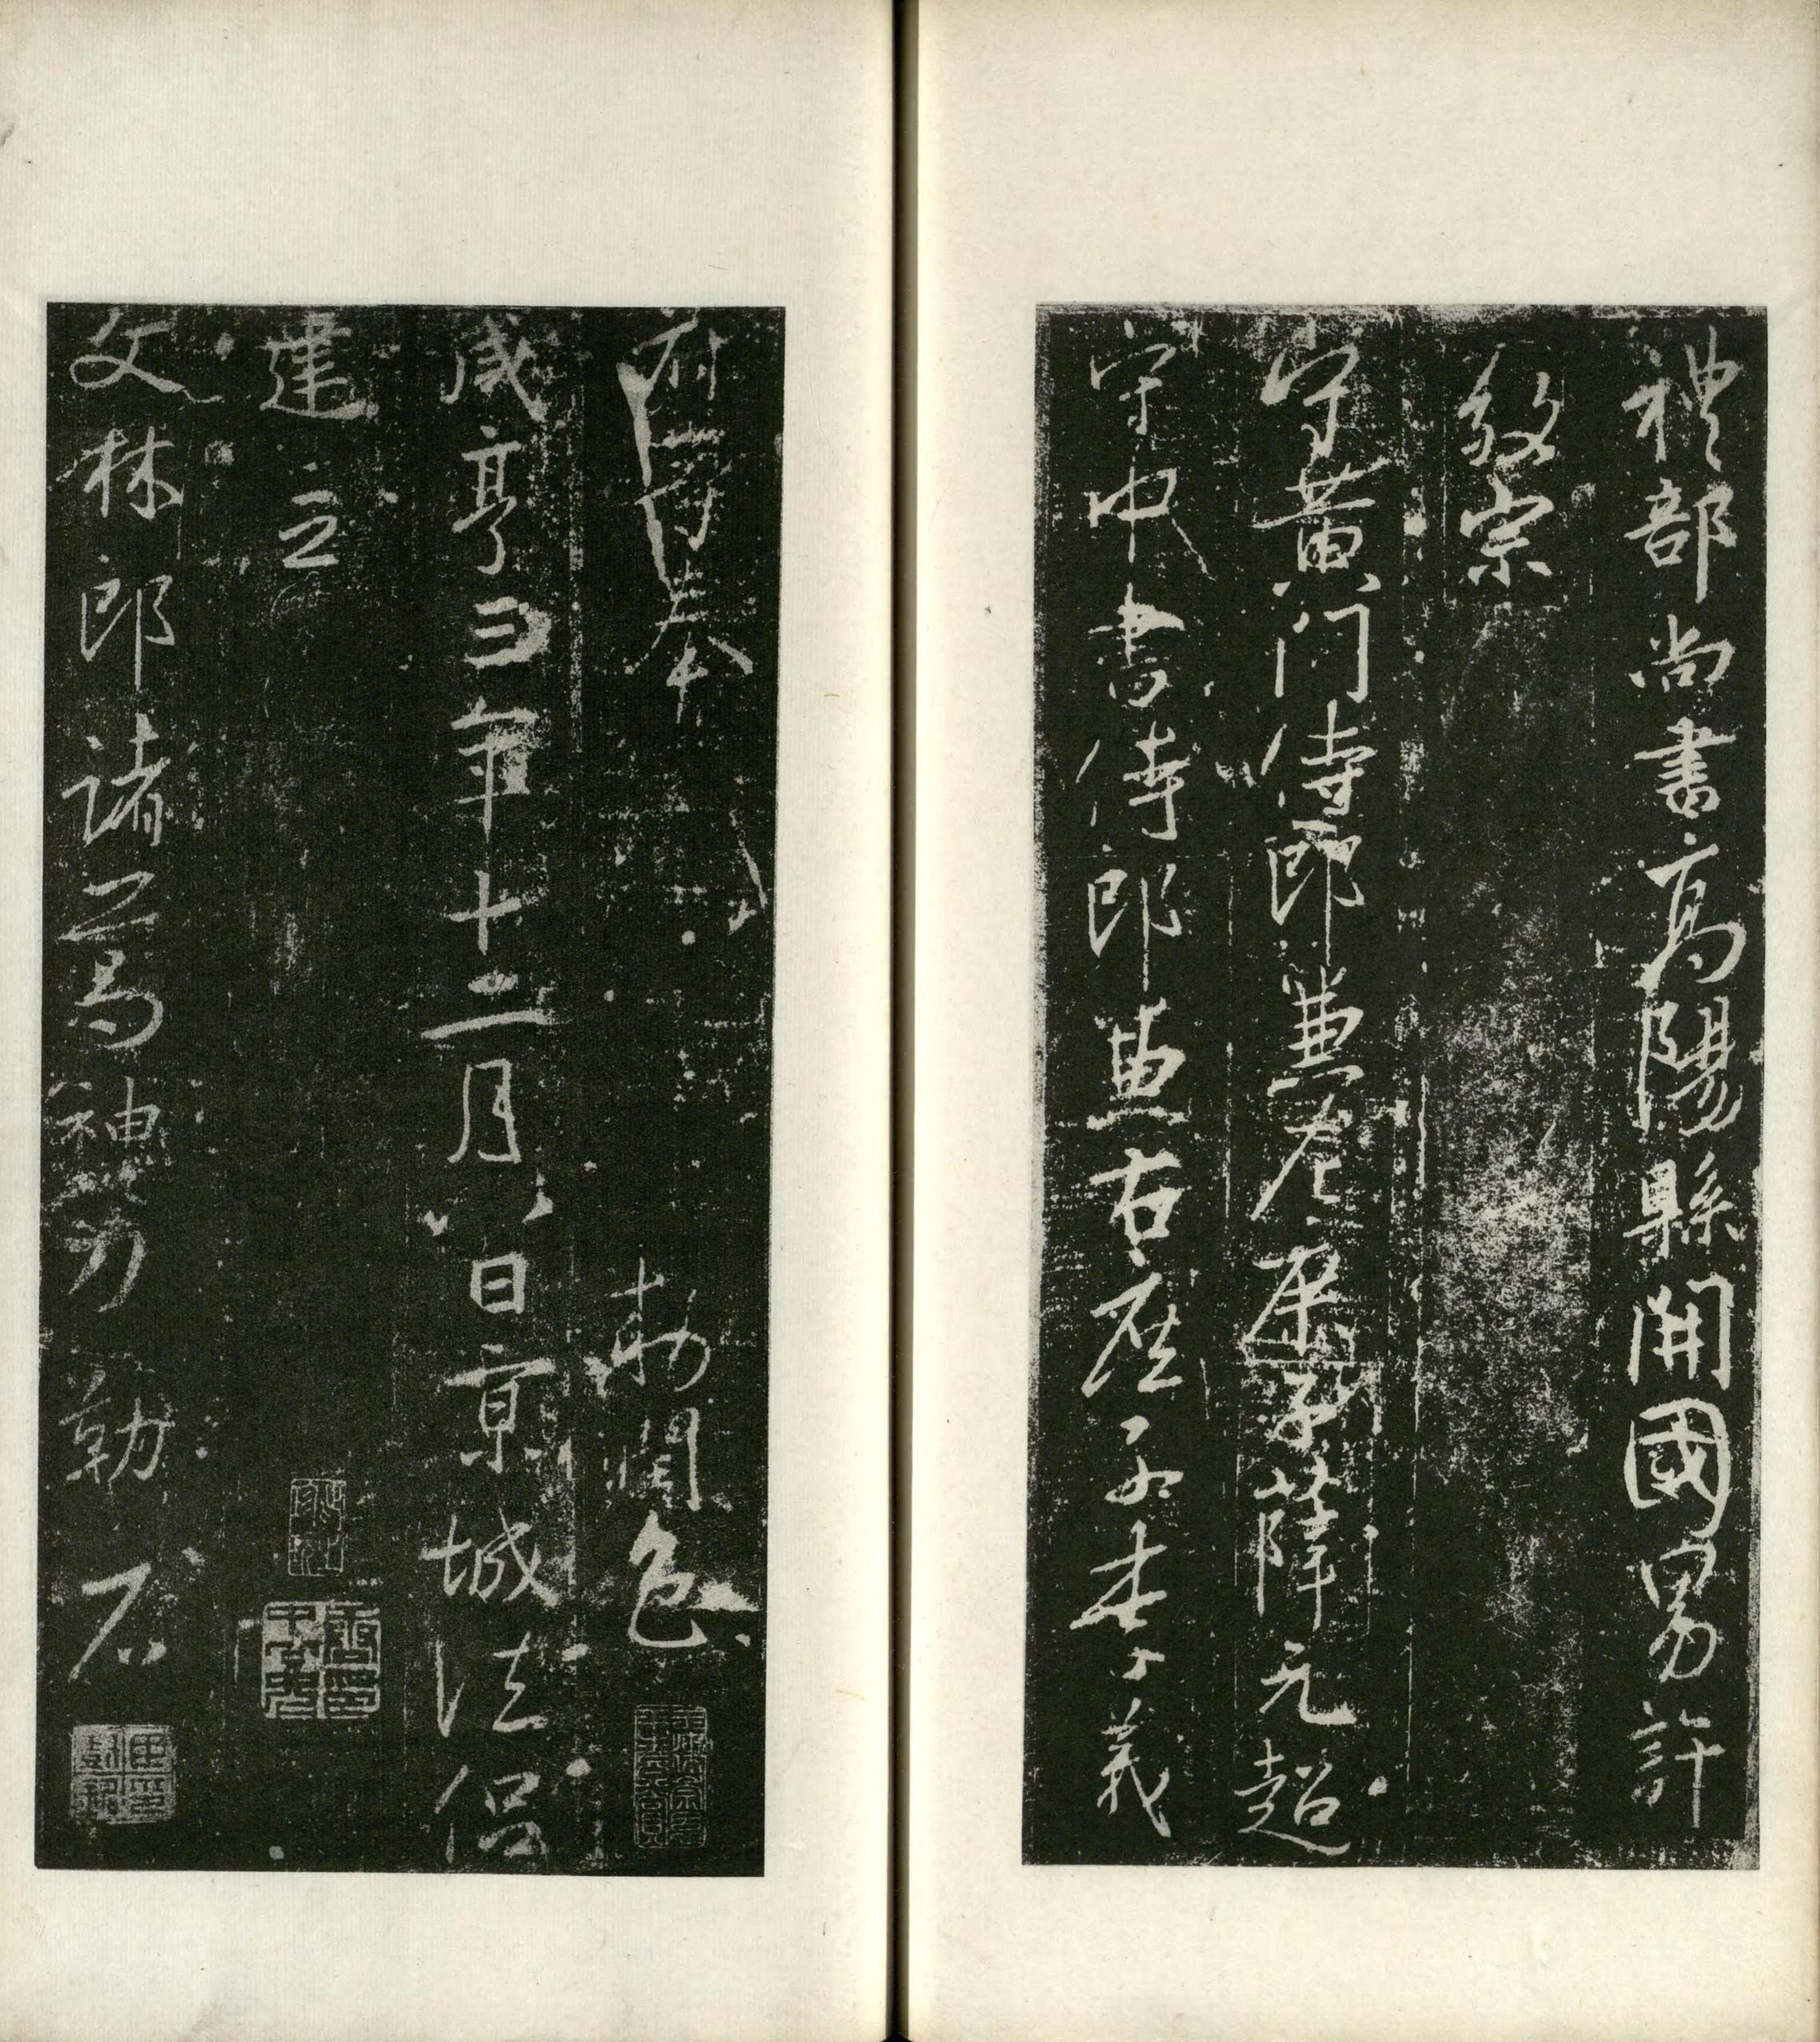 禮部尚書高陽縣開國男許
敬宗
守黃門侍郎兼左庶子薛元超
守中書侍郎兼右庶子李義
府等奉　勑潤色
咸亨三年十二月八日京城法侶
建立
文林郎諸葛神力勒石